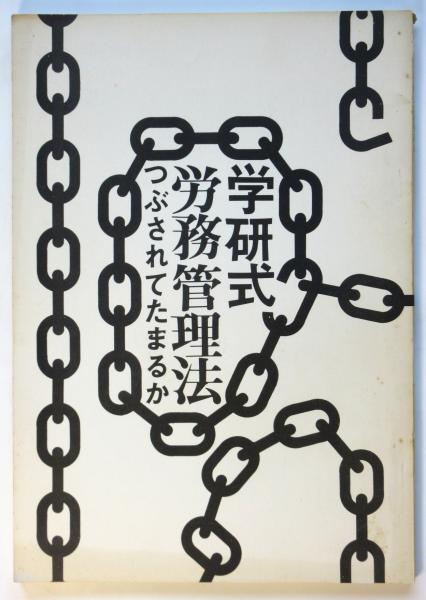 学研式
労務管理法
つぶされてたまるか